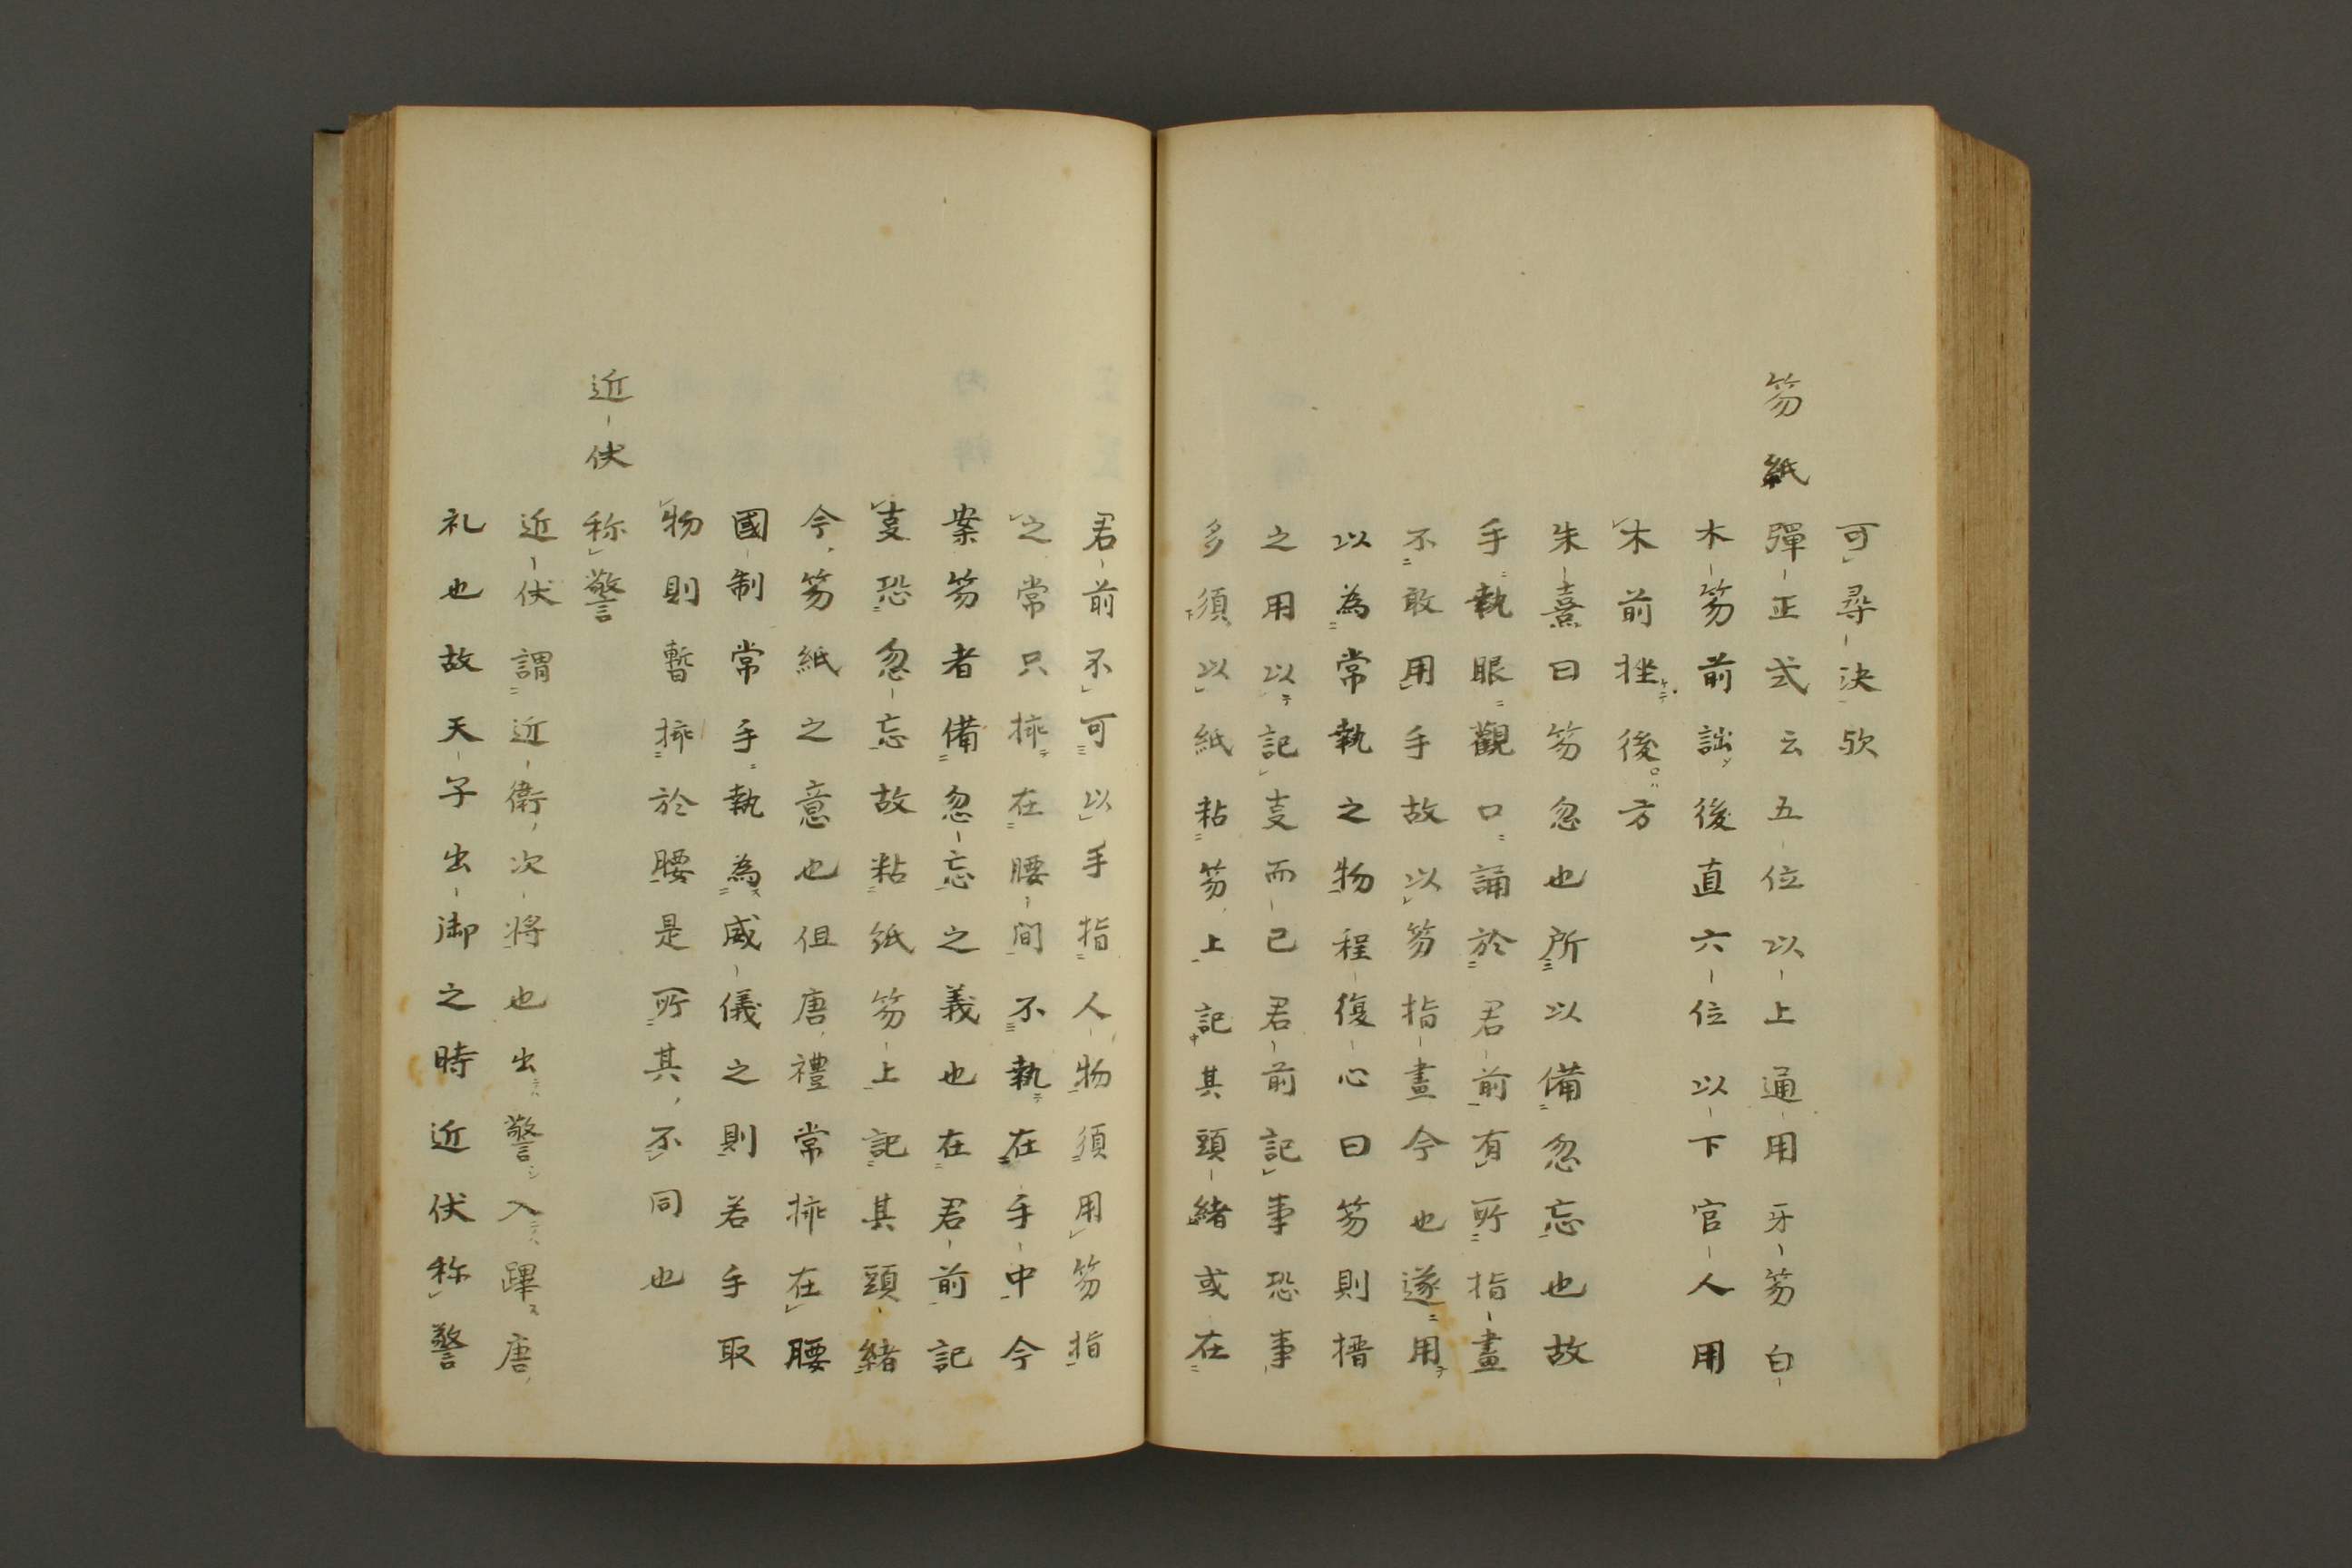 可尋決欤
笏紙
彈正式云五位以上通用牙笏白
木笏前詘後直六位以下官人用
木前挫後方
朱熹曰笏忽也所以備忽忘也故
手執眼觀口誦於君前有所指畫
不敢用手故以笏指畫今也遂用
以為常執之物程復心曰笏則搢
之用以記㕝而已君前記事恐事
多須以紙粘笏上記其頭緒或在
君前不可以手指人物須用笏指
之常只揷在腰間不執在手中今
案笏者備忽忘之義也在君前記
㕝恐忽忘故粘紙笏上記其頭緒
今笏紙之意也但唐禮常揷在腰
國制常手執為威儀之則若手取
物則暫揷於腰是所其不同也
近伏称警
近伏謂近衛次將也出警入蹕唐
礼也故天子出御之時近伏称警